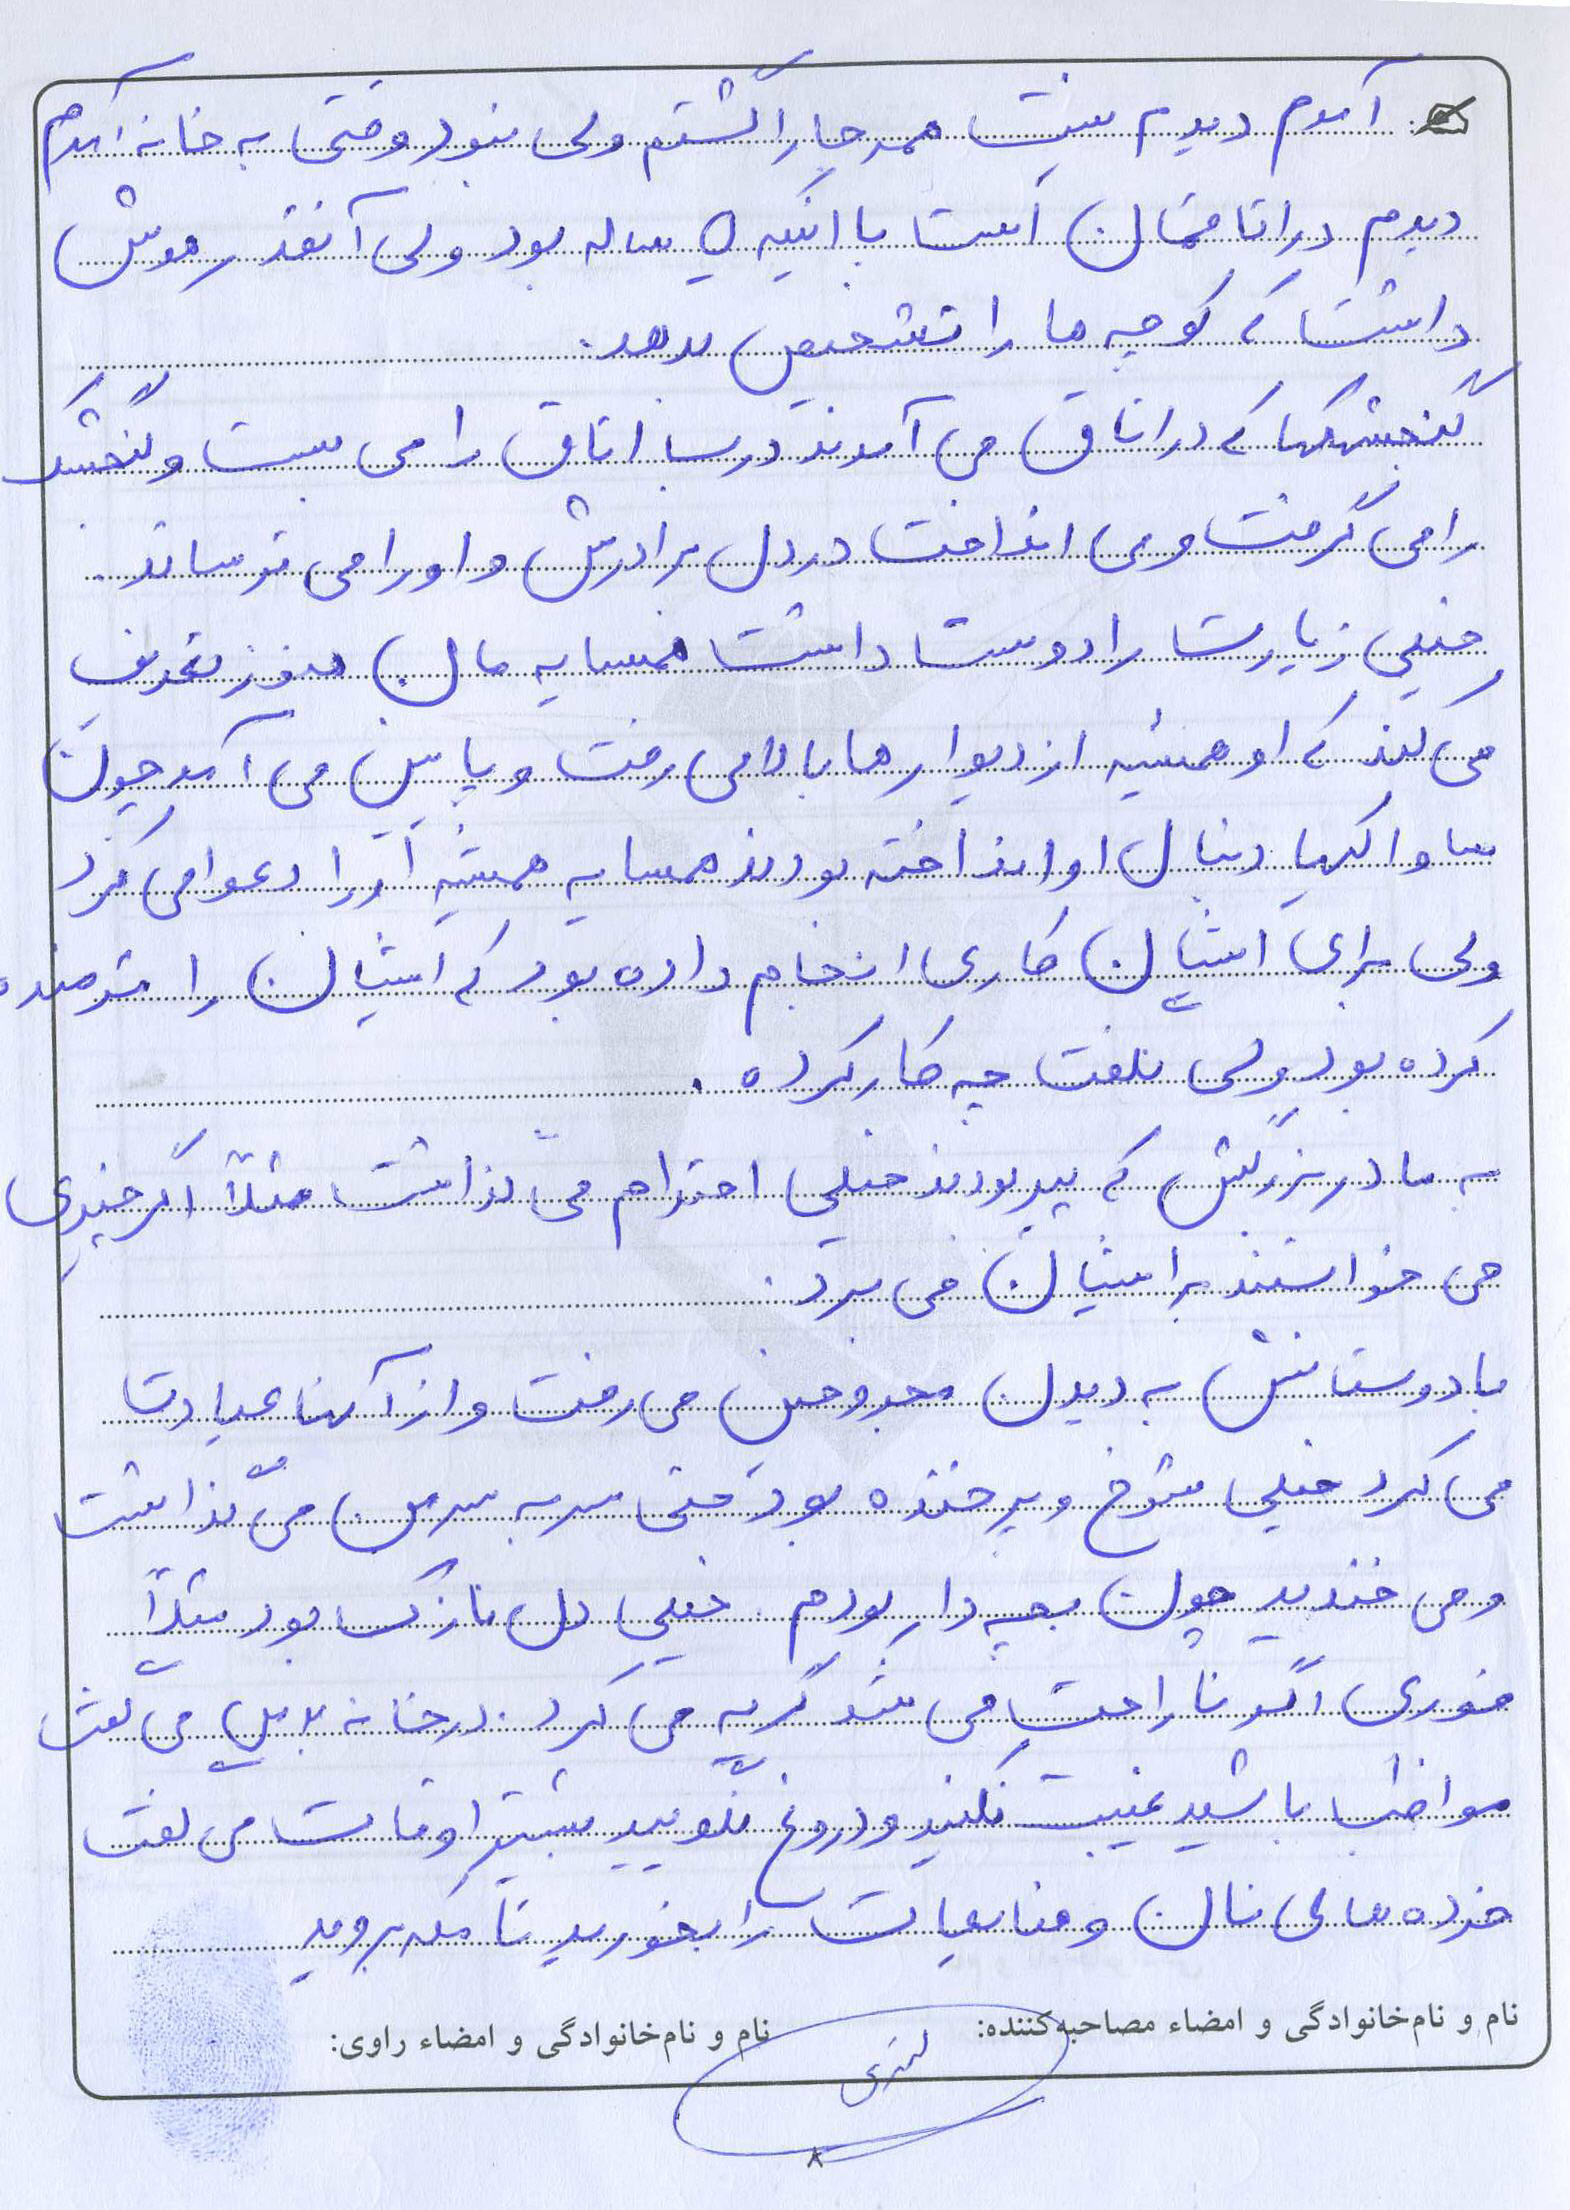 آمدم دیدم نیست همه جا را گشتم ولی نبود وقتی به خانه آمدم
دیدم در اتاقمان است با اینکه ۵ ساله بود ولی آنقدر هوش
داشت که کوچه ها را تشخیص بدهد.
گنجشکها که در اتاق می آمدند درب اتاق را می بست و گنجشک
را می گرفت و می انداخت در دل برادرش و او را می ترساند.
خیلی زیارت را دوست داشت همسایه مان هنوز تعریف
می کند که او همیشه از دیوارها بالا می رفت و پایین می آمد چون
ساواکیها دنبال او انداخته بودند همسایه همیشه او را دعوا می کرد
ولی برای ایشان کاری انجام داده بود که ایشان را شرمنده
کرده بود ولی نگفت چه کار کرده .
به مادربزرگش که پیر بودند خیلی احترام می گذاشت مثلاً اگر چیزی
می خواستند برایشان می برد.
با دوستانش به دیدن مجروحین می رفت و از آنها عیادت
می کرد خیلی شوخ و پر خنده بود حتی سر به سر من می گذاشت
و می خندید چون بچه دار بودم. خیلی دل نازک بود مثلاً
فوری اگر ناراحت می شد گریه می کرد. در خانه به من می گفت
مواظب باشید غیبت نکنید و دروغ نگویید بیشتر اوقات می گفت
خرده های نان و ضایعات را بخورید تا مکه بروید
نام و نام‌خانوادگی و امضاء مصاحبه‌کننده:
نام و نام‌خانوادگی و امضاء راوی:
۸